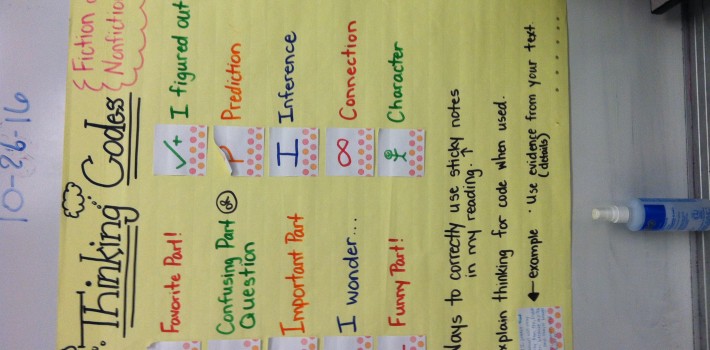 10-26-16
{ Fiction
{ Nonfiction
Thinking Codes
Favorite Part!
✓+ I figured out
Confusing Part or
Question
P Prediction
Important Part
I Inference
I wonder...
∞ Connection
Funny Part!
Character
Ways to correctly use sticky notes
in my reading.
explain thinking for code when used.
← example · Use evidence from your text
(details)